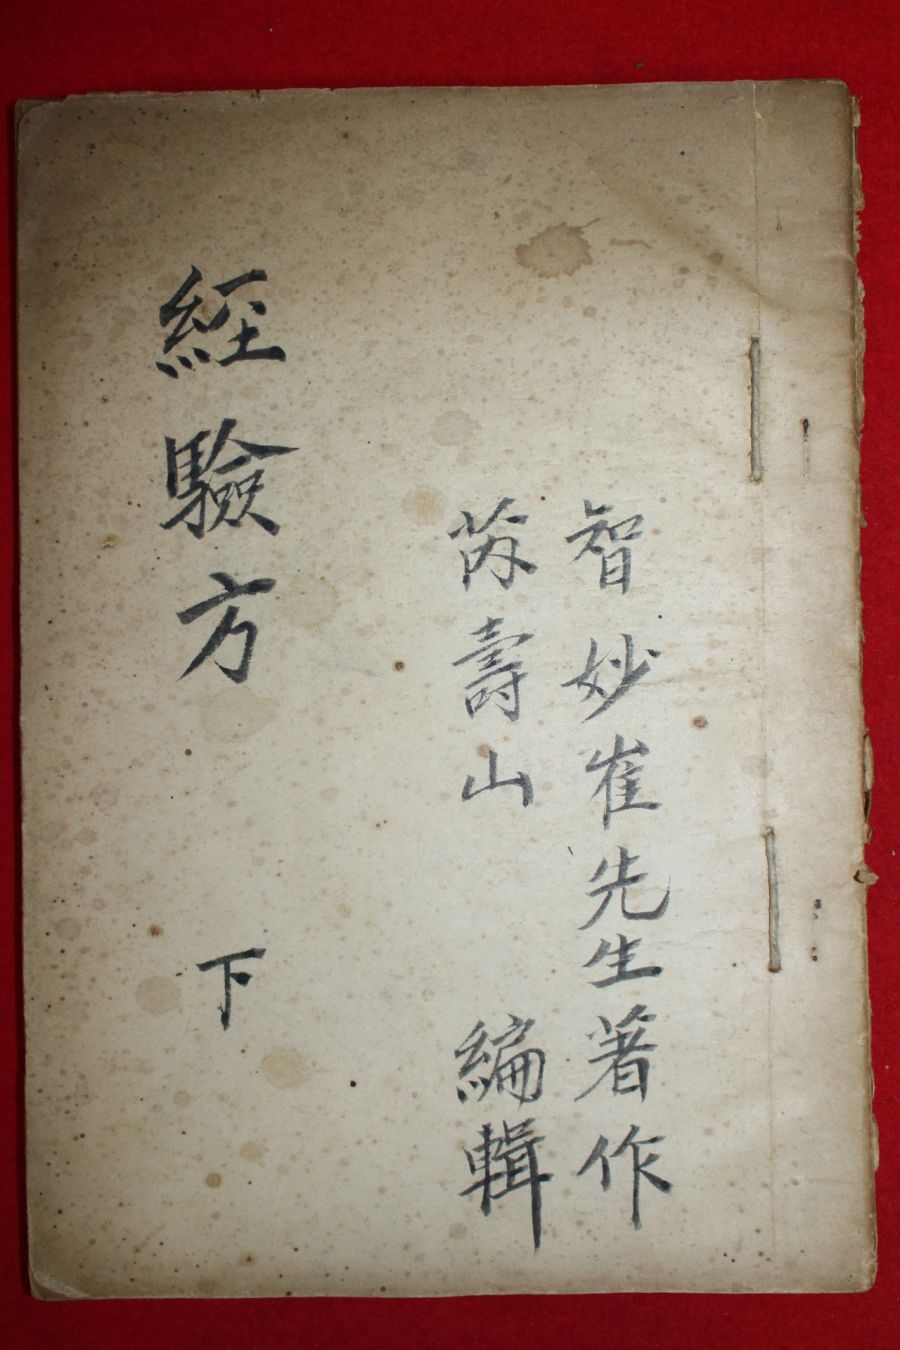 智妙崔先生著作
芮壽山 編輯
經驗方 下